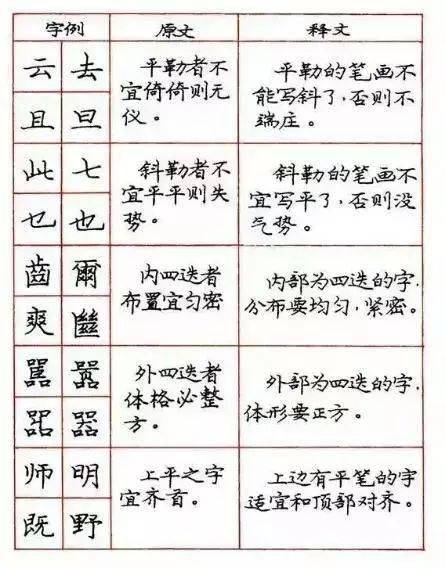 字例 原文 释文
云 去
且 旦
平勒者不
宜倚倚则无
仪。
平勒的笔画不
能写斜了,否则不
端庄。
此 七
乜 也
斜勒者不
宜平平则失
势。
斜勒的笔画不
宜写平了,否则没
气势。
齒 爾
爽
内四迭者
布置宜匀密
内部为四迭的字,
分布要均匀,紧密。
嚚 嚣
器
外四迭者
体格必整
方。
外部为四迭的字,
体形要正方。
师 明
既 野
上平之字
宜齐首。
上边有平笔的字
适宜和顶部对齐。